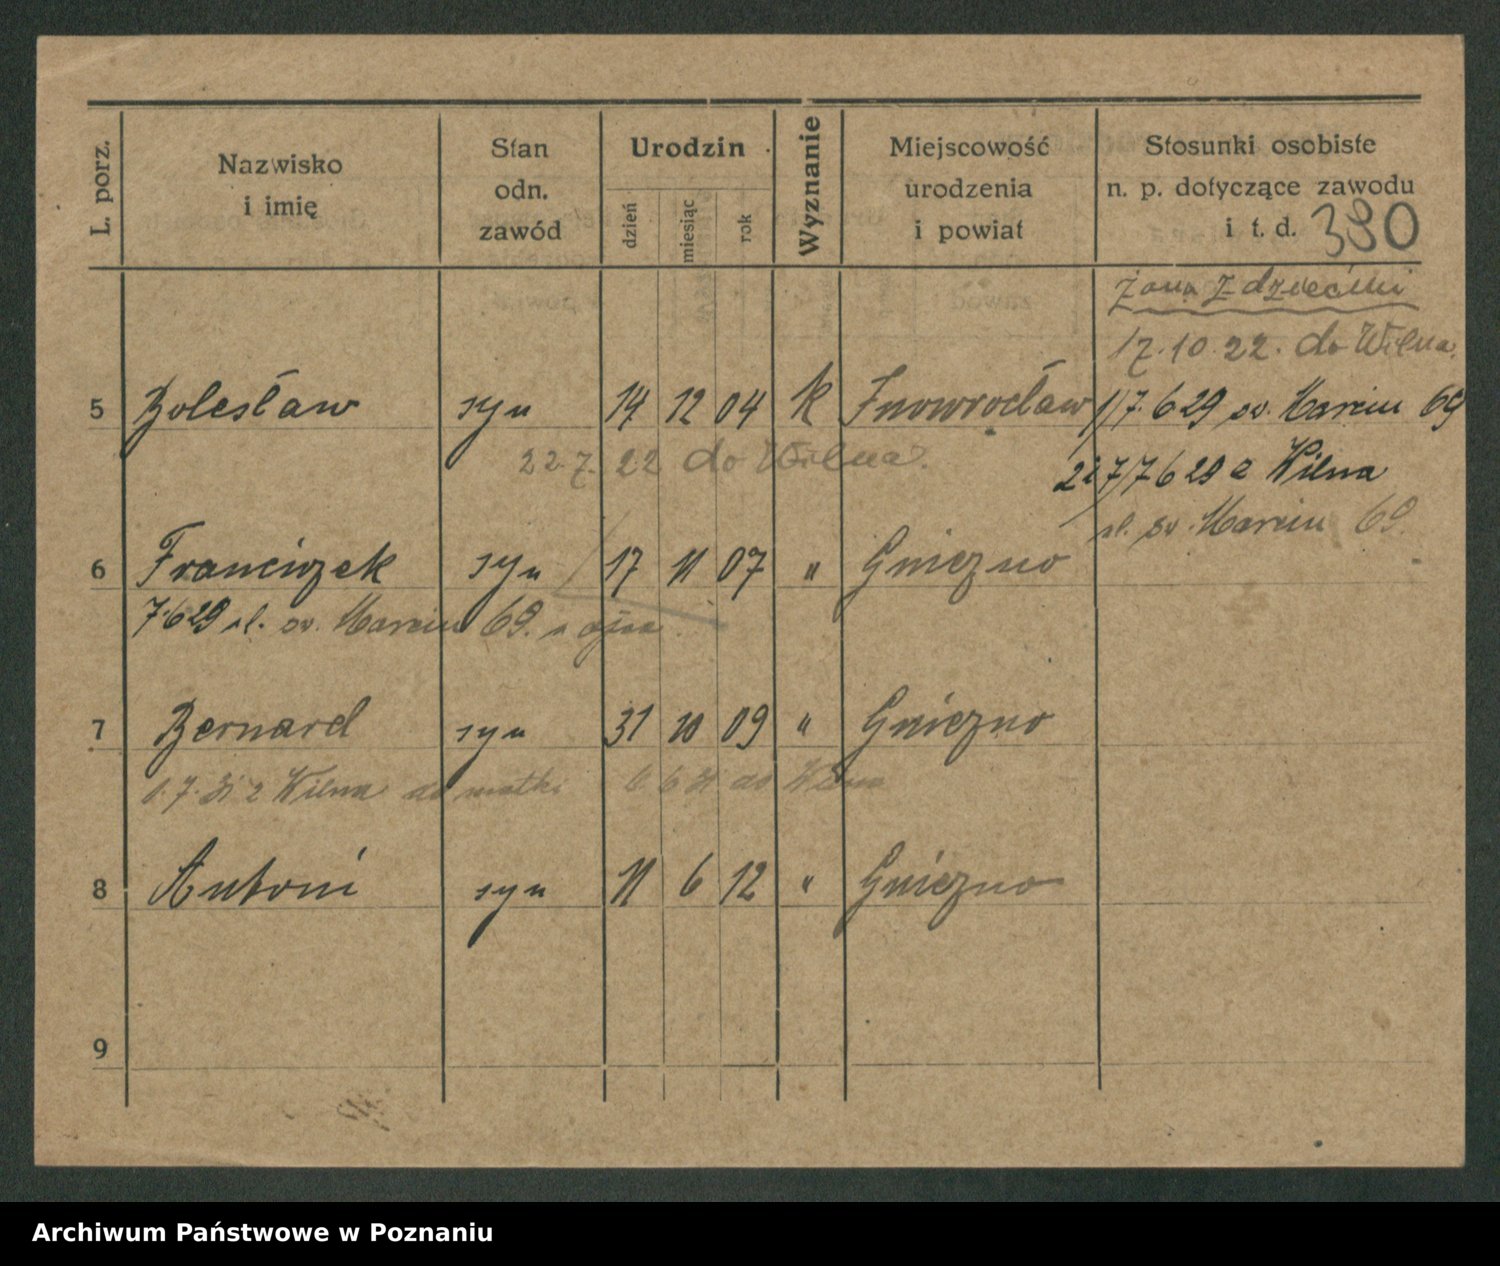 L. porz.
Nazwisko
i imię
Stan
odn.
zawód
Urodzin
dzień
miesiąc
rok
Wyznanie
Miejscowość
urodzenia
i powiat
Stosunki osobiste
n. p. dotyczące zawodu
i t. d. 390
Żona z dziećmi
17.10.22. do Wilna.
5 Bolesław syn 14 12 04 k Inowrocław 1/7.6 29 św. Marcin 69
22.7.22 do Wilna.
7/7 6 29 z Wilna
ul. św. Marcin 69.
6 Franciszek syn 17 11 07 " Gniezno
7.6 29 ul. św. Marcin 69.
7 Bernard syn 31 10 09 " Gniezno
1.7.31 z Wilna do matki 6 31 do Wilna
8 Antoni syn 11 6 12 " Gniezno
9
Archiwum Państwowe w Poznaniu